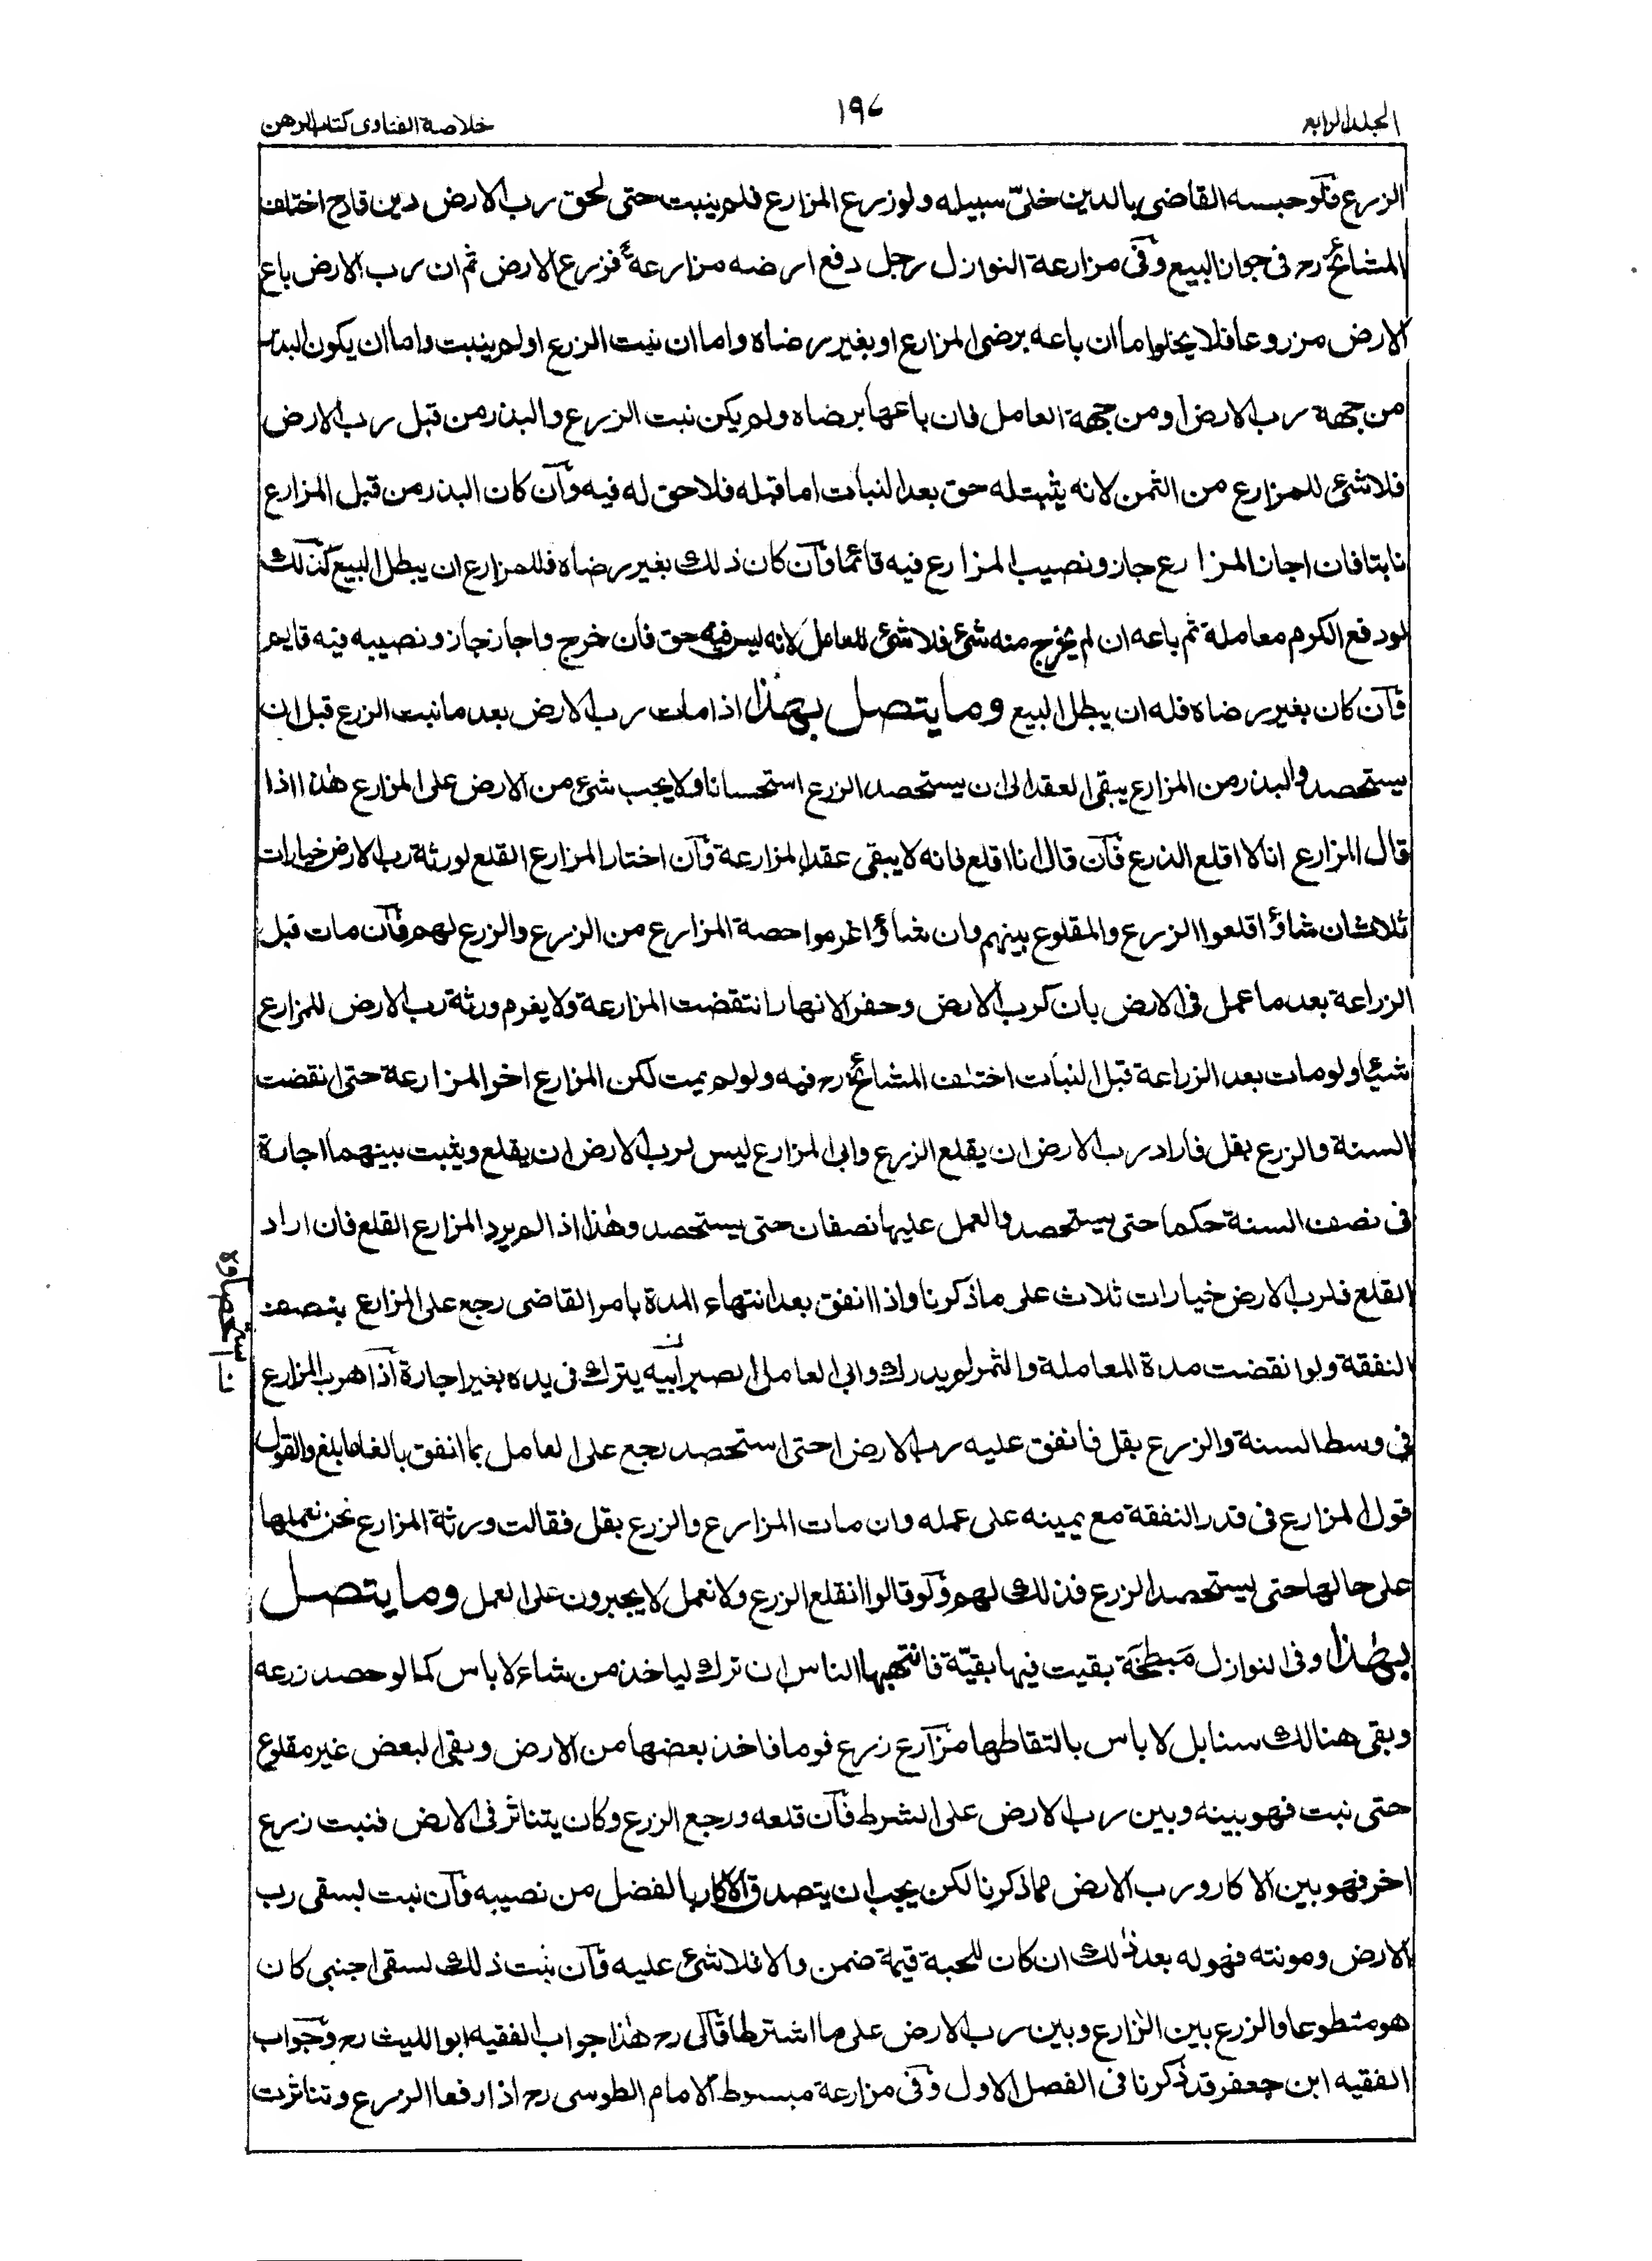 المجلد الرابع
١٩٧
خلاصة الفتاوى كتاب الرهن
الزرع فلو حبسه القاضى بالدين خلىّ سبيله ولو زرع المزارع فلم ينبت حتى لحق رب الارض دين فادح اختلف
المشائخ رح فى جواز البيع وفى مزارعة النوازل رجل دفع ارضه مزارعة فزرع الارض ثم ان رب الارض باع
الارض مزروعا فلا يخلوا ما ان باعه برضى المزارع او بغير رضاه واما ان نبت الزرع او لم ينبت واما ان يكون البذر
من جهة رب الارض او من جهة العامل فان باعها برضاه ولم يكن نبت الزرع والبذر من قبل رب الارض
فلا شئ للمزارع من الثمن لانه يثبت له حق بعد النبات اما قبله فلا حق له فيه وان كان البذر من قبل المزارع
نابتا فان اجاز المزارع جاز ونصيب المزارع فيه قائما وان كان ذلك بغير رضاه فللمزارع ان يبطل البيع كذلك
لو دفع الكرم معاملة ثم باعه ان لم يخرج منه شئ فلا شئ للعامل لانه ليس فيه حق فان خرج واجاز جاز ونصيبه فيه قايم
فان كان بغير رضاه فله ان يبطل البيع وما يتصل بهذا اذا مات رب الارض بعد ما نبت الزرع قبل ان
يستحصد والبذر من المزارع يبقى العقد الى ان يستحصد الزرع استحسانا ولا يجب شئ من الارض على المزارع هذا اذا
قال المزارع انا لا اقلع الزرع فان قال انا اقلع فانه لا يبقى عقد المزارعة وان اختار المزارع القلع لورثة رب الارض خيارات
ثلاث ان شاؤا اقلعوا الزرع والمقلوع بينهم وان شاؤا غرموا حصة المزارع من الزرع والزرع لهم فان مات قبل
الزراعة بعد ما عمل فى الارض بان كرب الارض وحفر الانهار انتقضت المزارعة ولا يغرم ورثة رب الارض للمزارع
شيئا ولو مات بعد الزراعة قبل النبات اختلف المشائخ رح فيه ولو لم يمت لكن المزارع اخر المزارعة حتى انقضت
السنة والزرع بقل فاراد رب الارض ان يقلع الزرع وابى المزارع ليس لرب الارض ان يقلع ويثبت بينهما اجارة
فى نصف السنة حكما حتى يستحصد والعمل عليها نصفان حتى يستحصد وهذا اذا لم يرد المزارع القلع فان اراد
القلع فلرب الارض خيارات ثلاث على ما ذكرنا واذا انفق بعد انتهاء المدة بامر القاضى رجع على المزارع بنصف
النفقة ولو انقضت مدة المعاملة والثمر لم يدرك وابى العامل الصبر يترك فى يده بغير اجارة اذا هرب المزارع
فى وسط السنة والزرع بقل فانفق عليه رب الارض حتى استحصد رجع على العامل بما انفق بالغا ما بلغ والقول
قول المزارع فى قدر النفقة مع يمينه على عمله وان مات المزارع والزرع بقل فقالت ورثة المزارع نحن نعملها
على حالها حتى يستحصد الزرع فذلك لهم ولو قالوا انقلع الزرع ولا نعمل لا يجبرون على العمل وما يتصل
بهذا وفى النوازل مبطخة بقيت فيها بقيّة فانتهبها الناس ان ترك لياخذ من شاء لا باس كما لو حصد زرعه
وبقى هنالك سنابل لا باس بالتقاطها مزارع زرع فوما فاخذ بعضها من الارض وبقى البعض غير مقلوع
حتى نبت فهو بينه وبين رب الارض على الشرط فان قلعه ورجع الزرع وكان يتناثر فى الارض فنبت زرع
اخر فهو بين الاكار ورب الارض مما ذكرنا لكن يجب ان يتصدق الاكار بالفضل من نصيبه فان نبت بسقى رب
الارض ومونته فهو له بعد ذلك ان كان للحبة قيمة ضمن والا فلا شئ عليه فان نبت ذلك بسقى اجنبى كان
هو متطوعا والزرع بين المزارع وبين رب الارض على ما اشترطا قال رح هذا جواب الفقيه ابو الليث رح وجواب
الفقيه ابن جعفر قد ذكرنا فى الفصل الاول وفى مزارعة مبسوط الامام الطوسى رح اذا رفعا الزرع وتناثرت